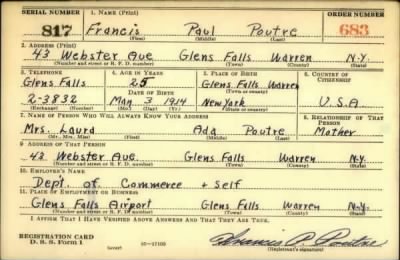 SERIAL NUMBER 1. NAME (Print) ORDER NUMBER
817 Francis Paul Poutre 683
(First) (Middle) (Last)
2. ADDRESS (Print)
43 Webster Ave Glens Falls Warren N.Y.
(Number and street or R. F. D. number) (Town) (County) (State)
3. TELEPHONE 4. AGE IN YEARS 5. PLACE OF BIRTH 6. COUNTRY OF CITIZENSHIP
Glens Falls 25 Glens Falls Warren
DATE OF BIRTH (Town or county)
2-3832 Mar 3 1914 New York U.S.A
(Exchange) (Number) (Mo.) (Day) (Yr.) (State or country)
7. NAME OF PERSON WHO WILL ALWAYS KNOW YOUR ADDRESS 8. RELATIONSHIP OF THAT PERSON
Mrs. Laura Ada Poutre Mother
(Mr., Mrs., Miss) (First) (Middle) (Last)
9. ADDRESS OF THAT PERSON
43 Webster Ave. Glens Falls Warren N.Y.
(Number and street or R. F. D. number) (Town) (County) (State)
10. EMPLOYER'S NAME
Dept. of Commerce + Self
11. PLACE OF EMPLOYMENT OR BUSINESS
Glens Falls Airport Glens Falls Warren N.Y.
(Number and street or R. F. D. number) (Town) (County) (State)
I AFFIRM THAT I HAVE VERIFIED ABOVE ANSWERS AND THAT THEY ARE TRUE.
REGISTRATION CARD
D. S. S. Form 1 Francis P. Poutre
(Registrant's signature)